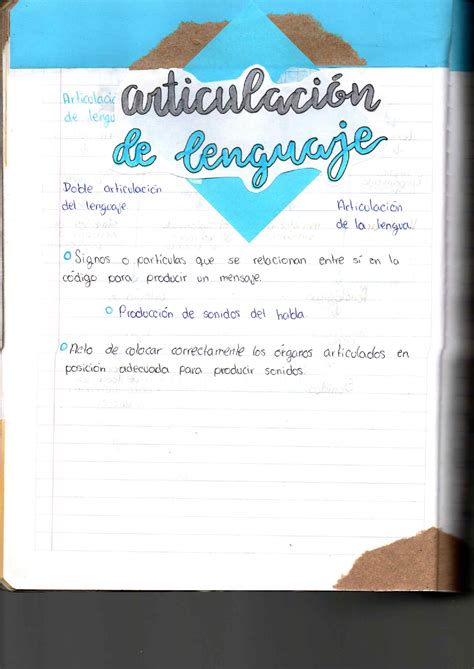 Articulació
de lengu
articulación
de lenguaje
Doble articulación
del lenguaje
Articulación
de la lengua.
Signos o partículas que se relacionan entre sí en la
código para producir un mensaje.
Producción de sonidos del habla.
Acto de colocar correctamente los órganos articulados en
posición adecuada para producir sonidos.